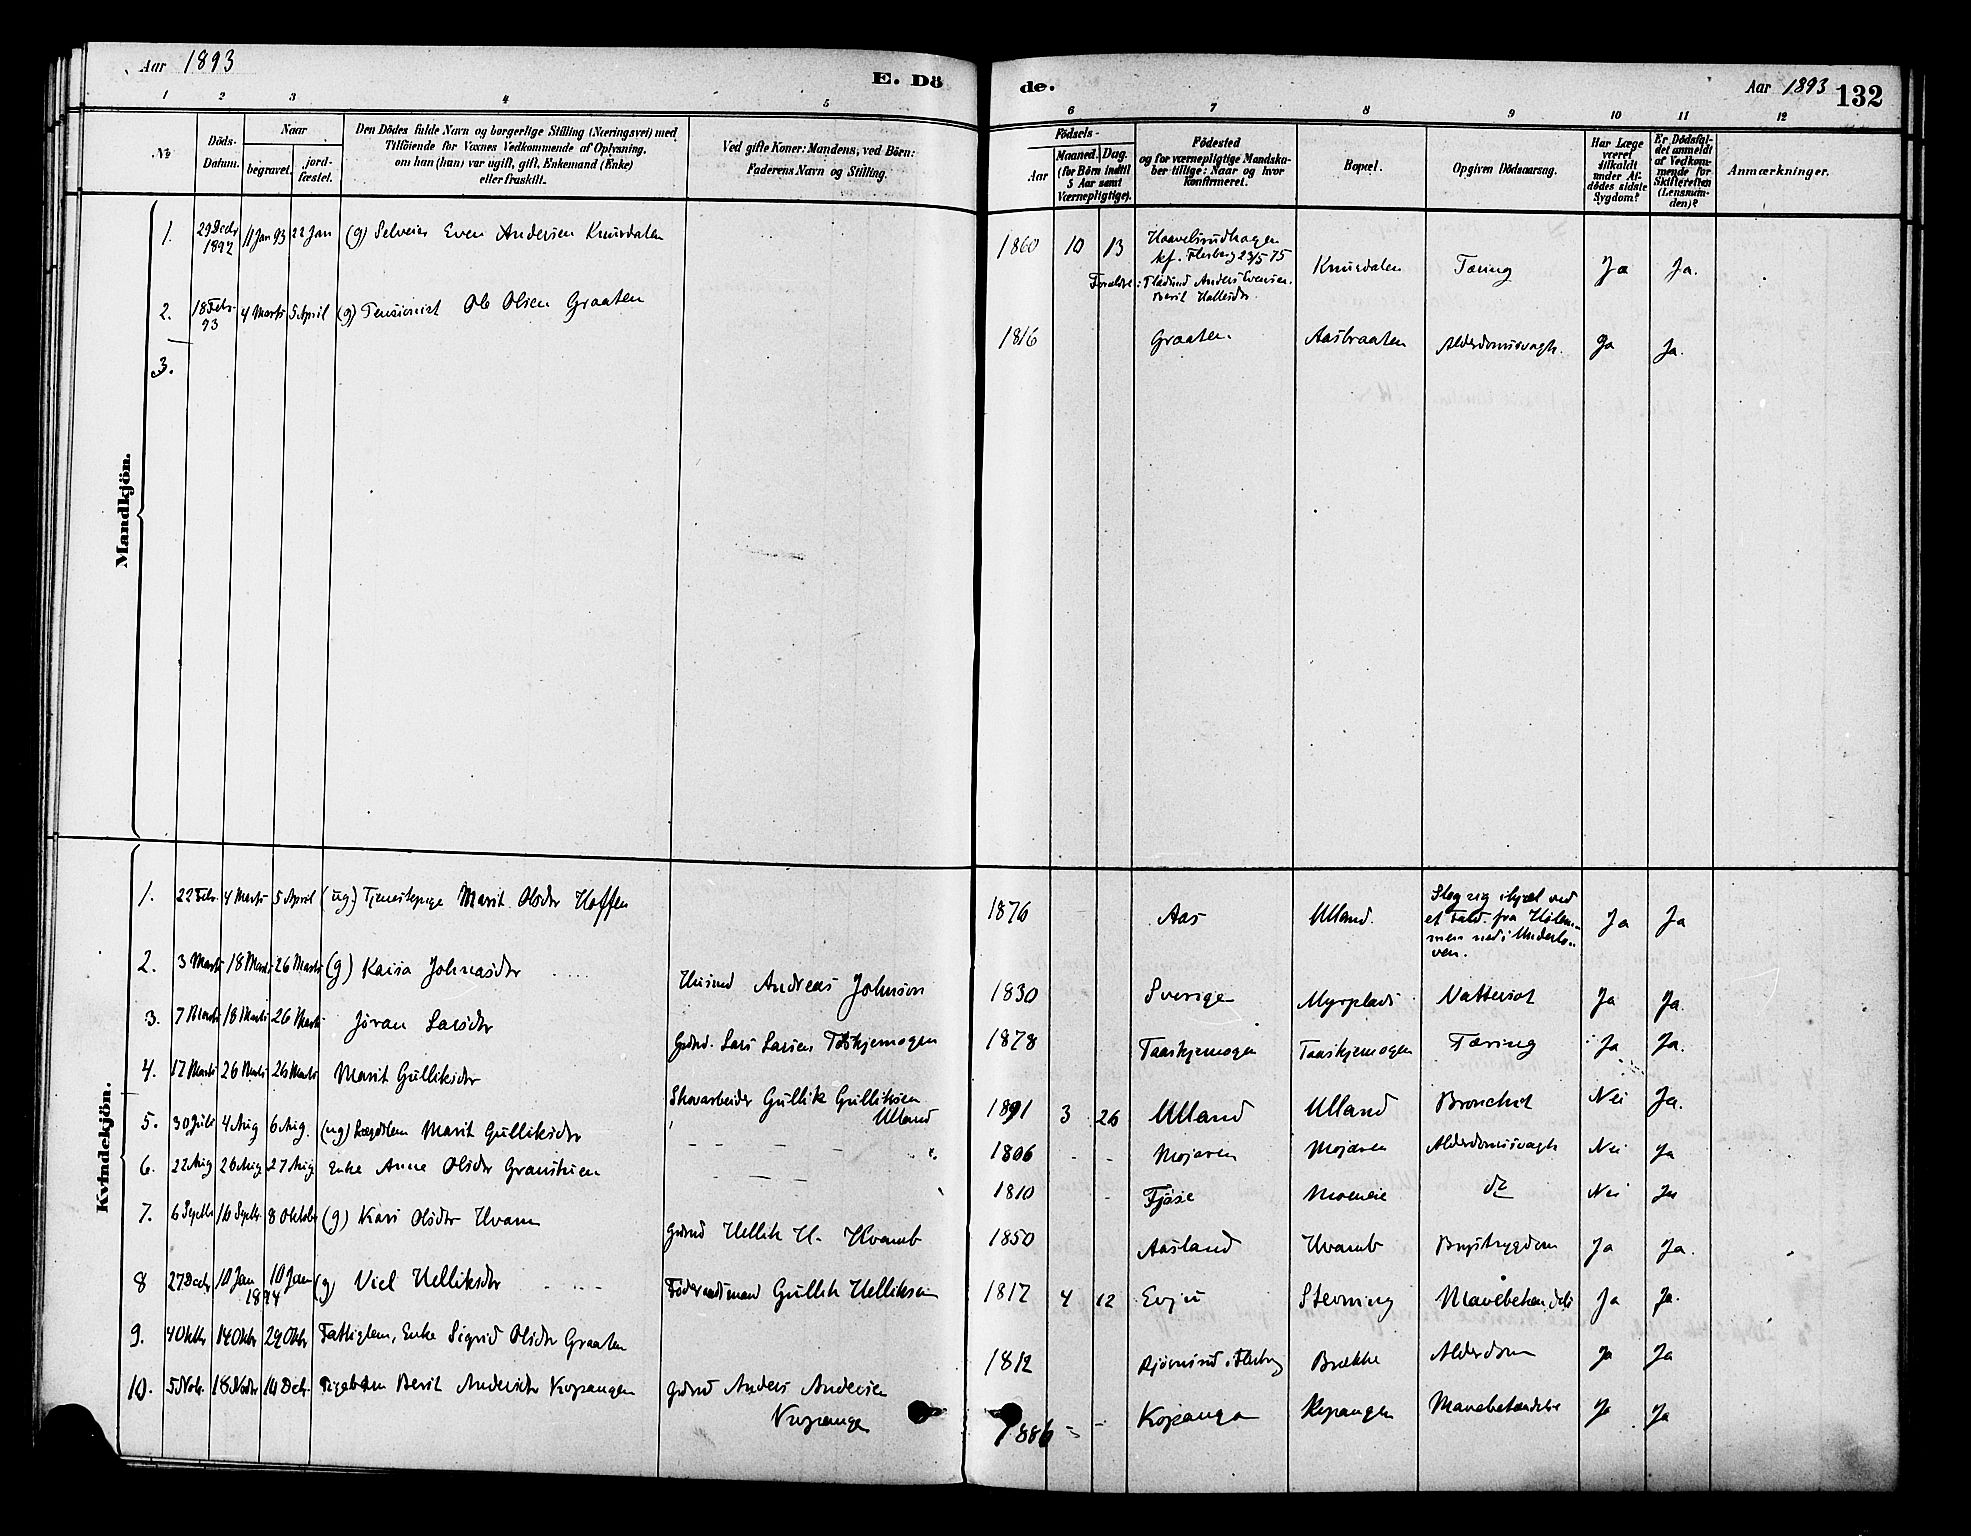 Aar 1893
E. Dö
de.
Aar 1893
132
1 2 3 4 5 6 7 8 9 10 11 12
No
Döds-
Datum.
Naar
begravet.
jord-
fæstet.
Den Dödes fulde Navn og borgerlige Stilling (Næringsvei) med
Tilföiende for Voxnes Vedkommende af Oplysning,
om han (hun) var ugift, gift, Enkemand (Enke)
eller fraskilt.
Ved gifte Koner: Mandens, ved Börn:
Faderens Navn og Stilling.
Födsels-
Aar
Maaned.
Dag.
(for Börn indtil
5 Aar samt
Værnepligtige).
Födested
og for værnepligtige Mandska-
ber tillige: Naar og hvor
Konfirmeret.
Bopæl.
Opgiven Dödsaarsag.
Har Læge
været
tilkaldt
under Af-
dödes sidste
Sygdom?
Er Dödsfal-
det anmeldt
af Vedkom-
mende for
Skifteretten
(Lensman-
den)?
Anmærkninger.
Mandkjön.
1. 29 Decbr 1892 11 Jan 93 22 Jan (g) Selveier Even Andersen Knursdalen 1860 10 13
kf. Flesberg 23/5 75 Knursdalen Tæring Ja Ja.
2. 18 Febr. 93 4 Marts 5 April (g) Pensionist Ole Olsen Graaten 1816 Graaten Aasbraaten Alderdomssvagh. Ja Ja.
3.
Kvindekjön.
1. 22 Febr. 4 Marts 5 April (ug.) Tjenestepige Marit Olsdtr Hoffen 1876 Aas Ulland. Slog sig ihjel ved
et Fald fra
Ja Ja
2. 3 Marts 18 Marts 26 Marts (g) Kaisa Johnasdtr Husmd Andreas Johnson 1830 Sverige Myrplads Nattesot Ja Ja.
3. 7 Marts 18 Marts 26 Marts Jöran Larsdtr Gdmd. Lars Larsen 1878 Taaskjemogen Taaskjemogen Tæring Ja Ja.
4. 17 Marts 26 Marts 26 Marts Marit Gulliksdtr Skovarbeider Gullik Gulliksen
Ulland 1891 3 26 Ulland Ulland Bronchit Nei Ja.
5. 30 Juli 4 Aug 6 Aug. (ug) Lægdslem Marit Gulliksdtr 1806 - - Mojaren Mojaren Alderdomssvagh Nei Ja
6. 22 Aug 26 Aug 27 Aug Enke Anne Olsdtr 1810 - Fjøse Moeneie do Nei Ja
7. 6 Septbr 16 Septbr 8 Oktobr (g) Kari Olsdtr Hvam Gdmd Hellik H. Hvamb 1850 Aasland Hvamb Brystsygdom Ja Ja.
8 27 Decbr 10 Jan 1894 10 Jan (g) Viel Helliksdtr Föderaadsmand Gullik Helliksen 1817 4 12 Evju Stevning Ja Ja.
9. 4 Oktbr 14 Oktbr 29 Oktbr Fattiglem, Enke Sigrid Olsdtr Graaten 1812 Brække Alderdom Ja Ja
10. 5 Novbr. 18 Novbr 10 Decbr. Pigebarn Berit Andersdtr Kopangen Gdmd Anders Andersen
Kopangen 1886 - - Kopangen Kopangen Mavebetændelse Ja Ja